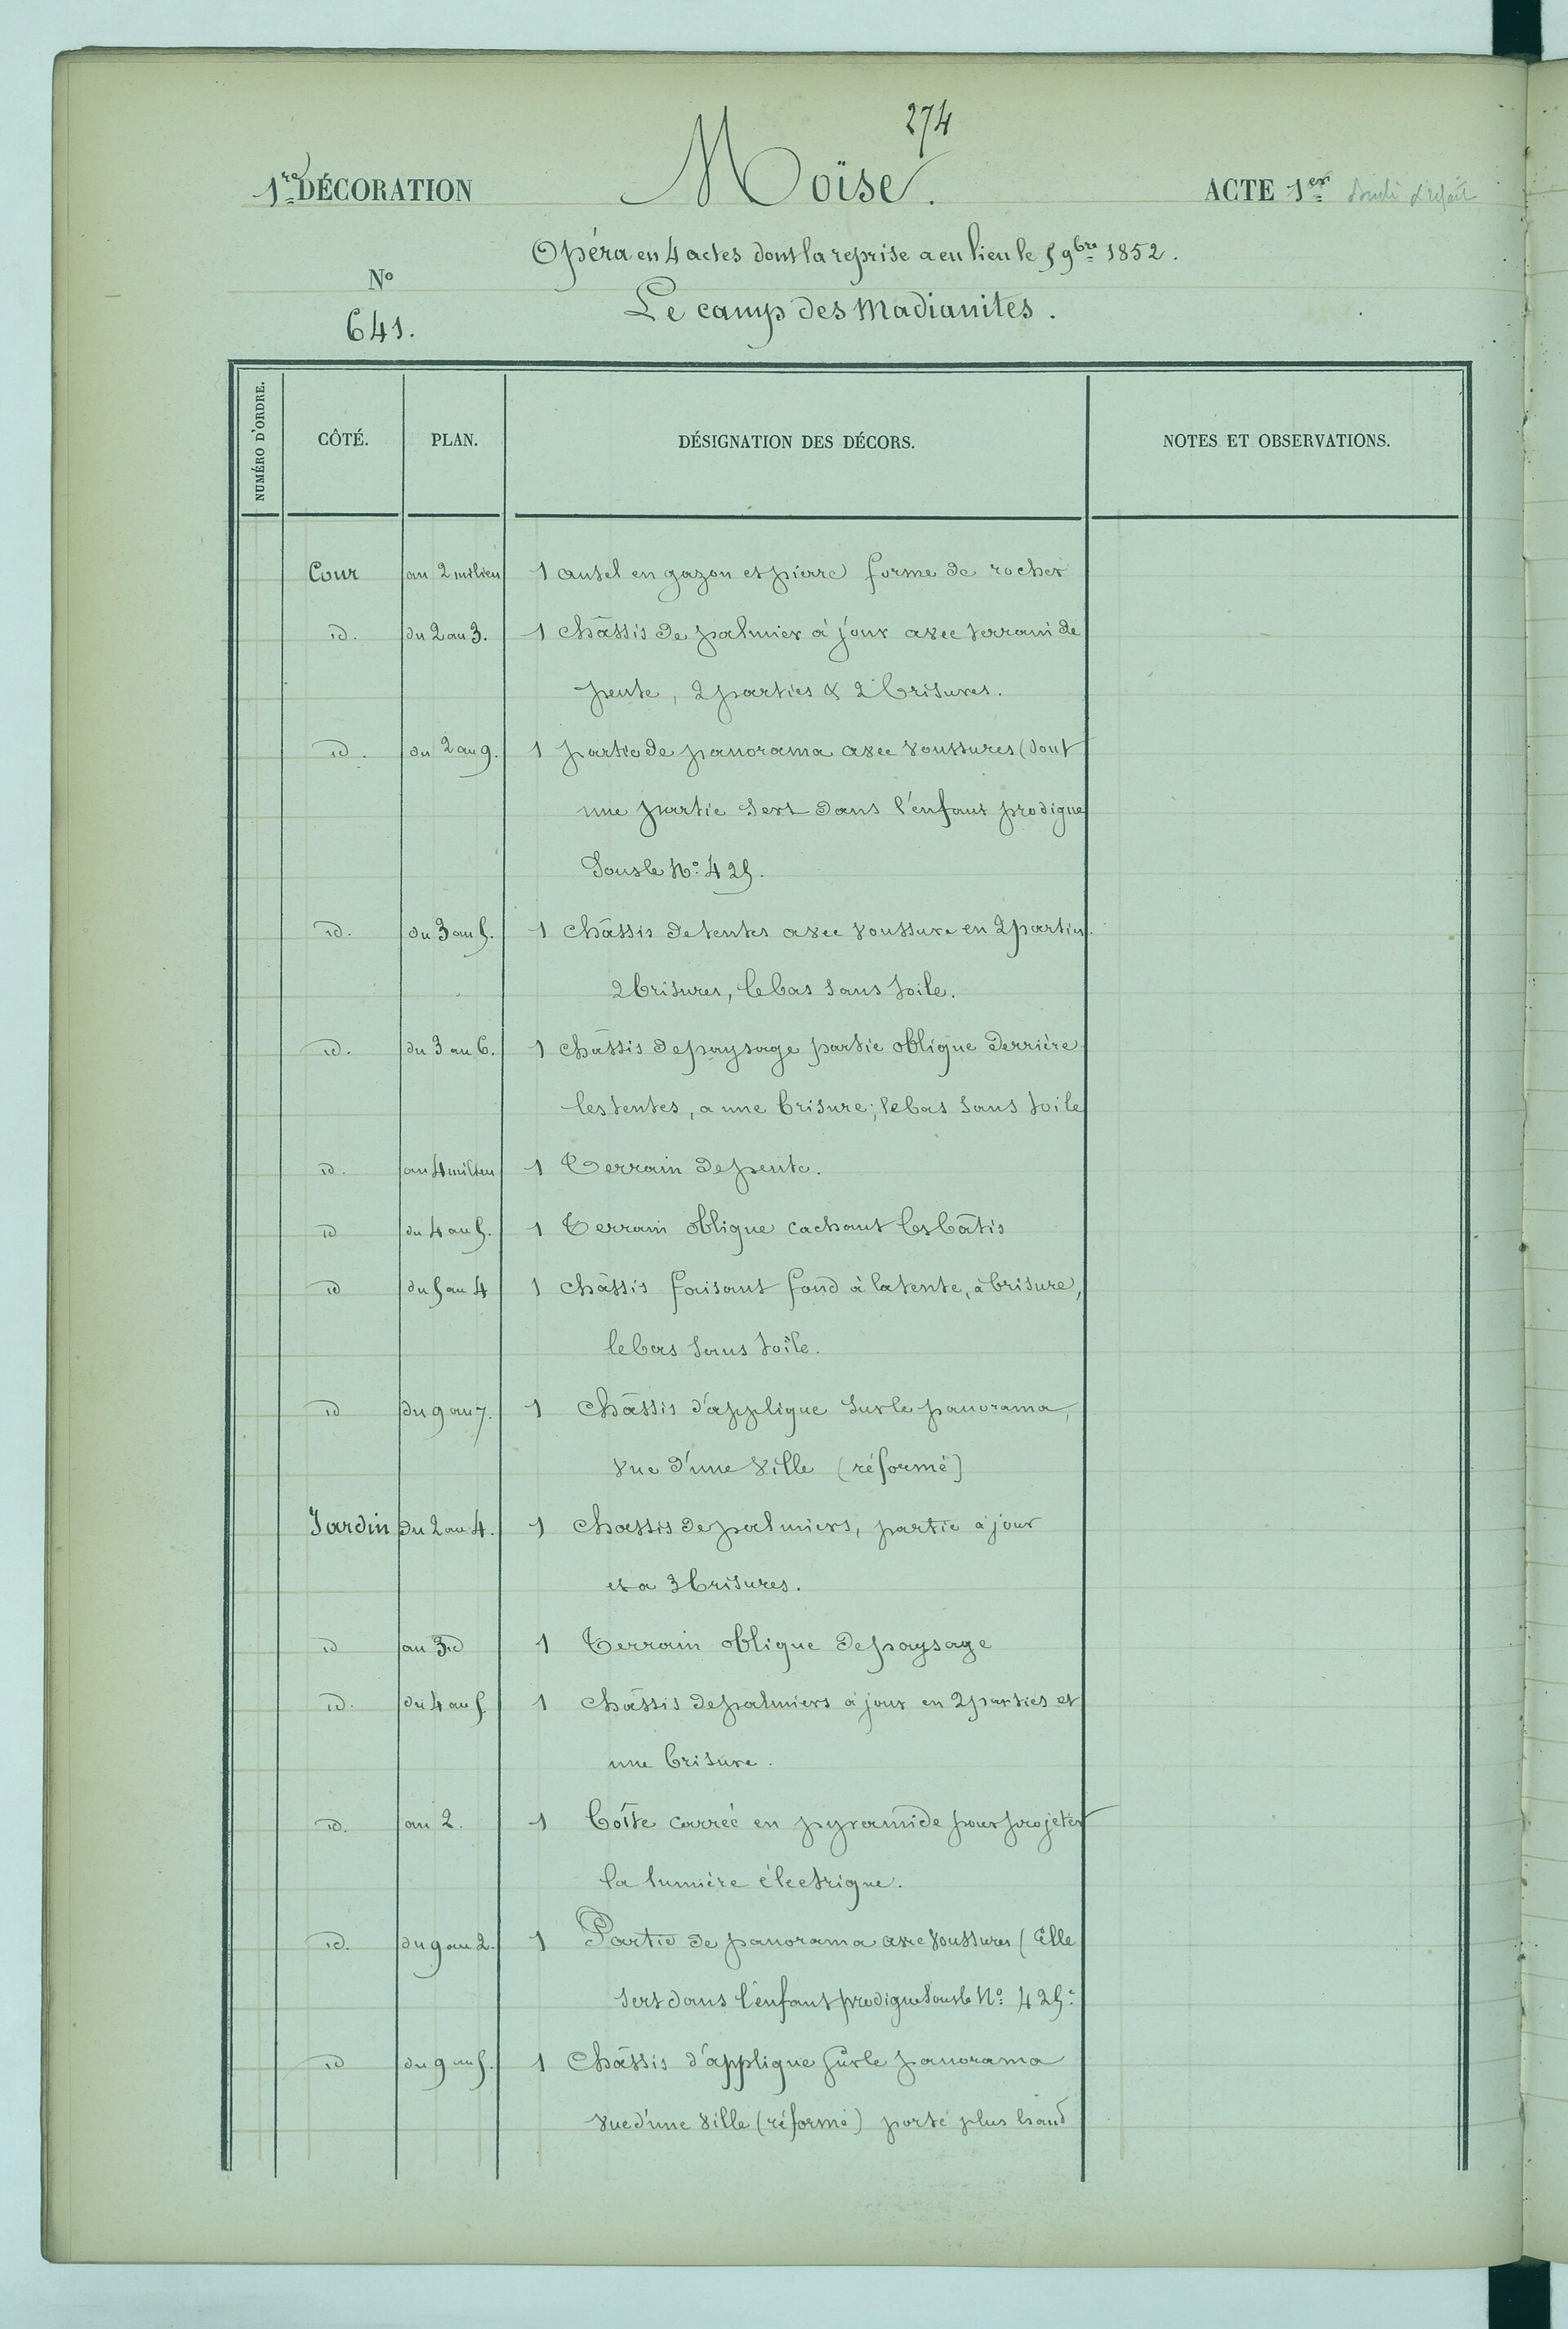 274
1re DÉCORATION Moïse. ACTE 1er
Opéra en 4 actes dont la reprise a eu lieu le 5 9bre 1852.
No
Le camp des Madianites.
641.
NUMÉRO D'ORDRE. CÔTÉ. PLAN. DÉSIGNATION DES DÉCORS. NOTES ET OBSERVATIONS.
Cour au 2 milieu 1 autel en gazon et pierre forme de rocher
id. du 2 au 3. 1 châssis de palmier à jour avec terrain de
pente, 2 parties & 2 brisures.
id. du 2 au 9. 1 partie de panorama avec voussures (dont
une partie sert dans l'enfant prodigue
sous le No: 425.
id. du 3 au 5. 1 châssis de tentes avec voussure en 2 parties.
2 brisures, le bas sans toile.
id. du 3 au 6. 1 châssis de paysage partie oblique derrière
les tentes, a une brisure; le bas sans toile
id. au 4 milieu 1 Terrain de pente.
id du 4 au 5. 1 Terrain oblique cachant les bâtis
id du 5 au 4 1 châssis faisant fond à la tente, à brisure,
le bas sans toile.
id du 9 au 7. 1 châssis d'applique sur le panorama,
vue d'une ville (réformé)
Jardin du 2 au 4. 1 chassis de palmiers, partie à jour
et a 3 brisures.
id au 3 id 1 Terrain oblique de paysage
id. du 4 au 5 1 châssis de palmiers à jour en 2 parties et
une brisure.
id. au 2. 1 boîte carrée en pyramide pour projeter
la lumière électrique.
id. du 9 au 2. 1 Partie de panorama avec voussures (Elle
sert dans l'enfant prodigue sous le No: 425.
id du 9 au 5. 1 Châssis d'applique sur le panorama
vue d'une ville (réformé) porté plus haut